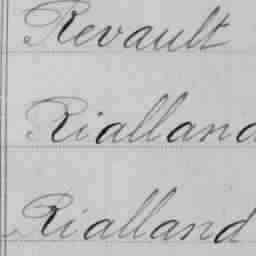 Revault
Rialland
Rialland